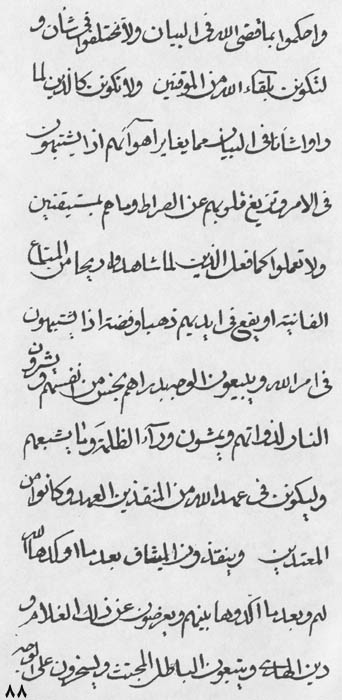 واحكموا بما قضى الله فى البيان ولا تختلفوا فى شأن و
لتكونن بلقاء الله من الموقنين ولا تكونن كالذين لما
راوا شأنا فى البيان مما يغاير اهوآئهم اذا يشتبهون
فى الامر و تزيغ قلوبهم عن الصراط وما هم بمستيقنين
ولا تعملوا كما فعل الذين لما شاهدوا ربحا من المتاع
الفانية او يقع فى ايديهم ذهبا وفضة اذا يشتبهون
فى امر الله ويبيعون الوجه بدراهم بخس من انفسهم ويشرون
النار لذواتهم ويمشون ورآء الظلمة وما يتبعهم
وليكونن فى عهد الله من المنقذين العهد وكانوا من
المعتدين وينقذون الميثاق بعد ما اوكد الله
لهم وبعد ما اكدوها بينهم ويعرضون عن ذلك الغلام و
دين الهدى ويتبعون الباطل المجتث ويسخرون على الوجه
٨٨